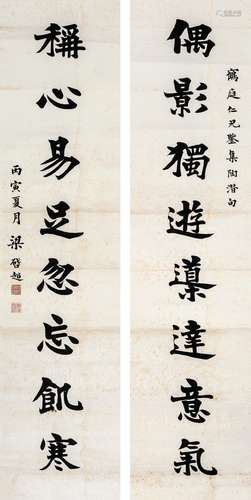 寯庭仁兄鉴集陶潜句
偶影獨遊導達意氣
稱心易足忽忘飢寒
丙寅夏月梁啓超